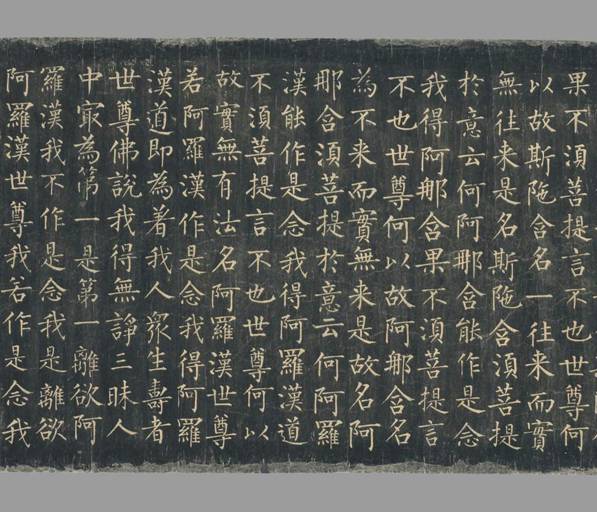 果不須菩提言不也世尊何
以故斯陁含名一往来而實
無往来是名斯陁含須菩提
於意云何阿那含能作是念
我得阿那含果不須菩提言
不也世尊何以故阿那含名
為不来而實無来是故名阿
那含須菩提於意云何阿羅
漢能作是念我得阿羅漢道
不須菩提言不也世尊何以
故實無有法名阿羅漢世尊
若阿羅漢作是念我得阿羅
漢道即為著我人眾生壽者
世尊佛說我得無諍三昧人
中寂為第一是第一離欲阿
羅漢我不作是念我是離欲
阿羅漢世尊我若作是念我